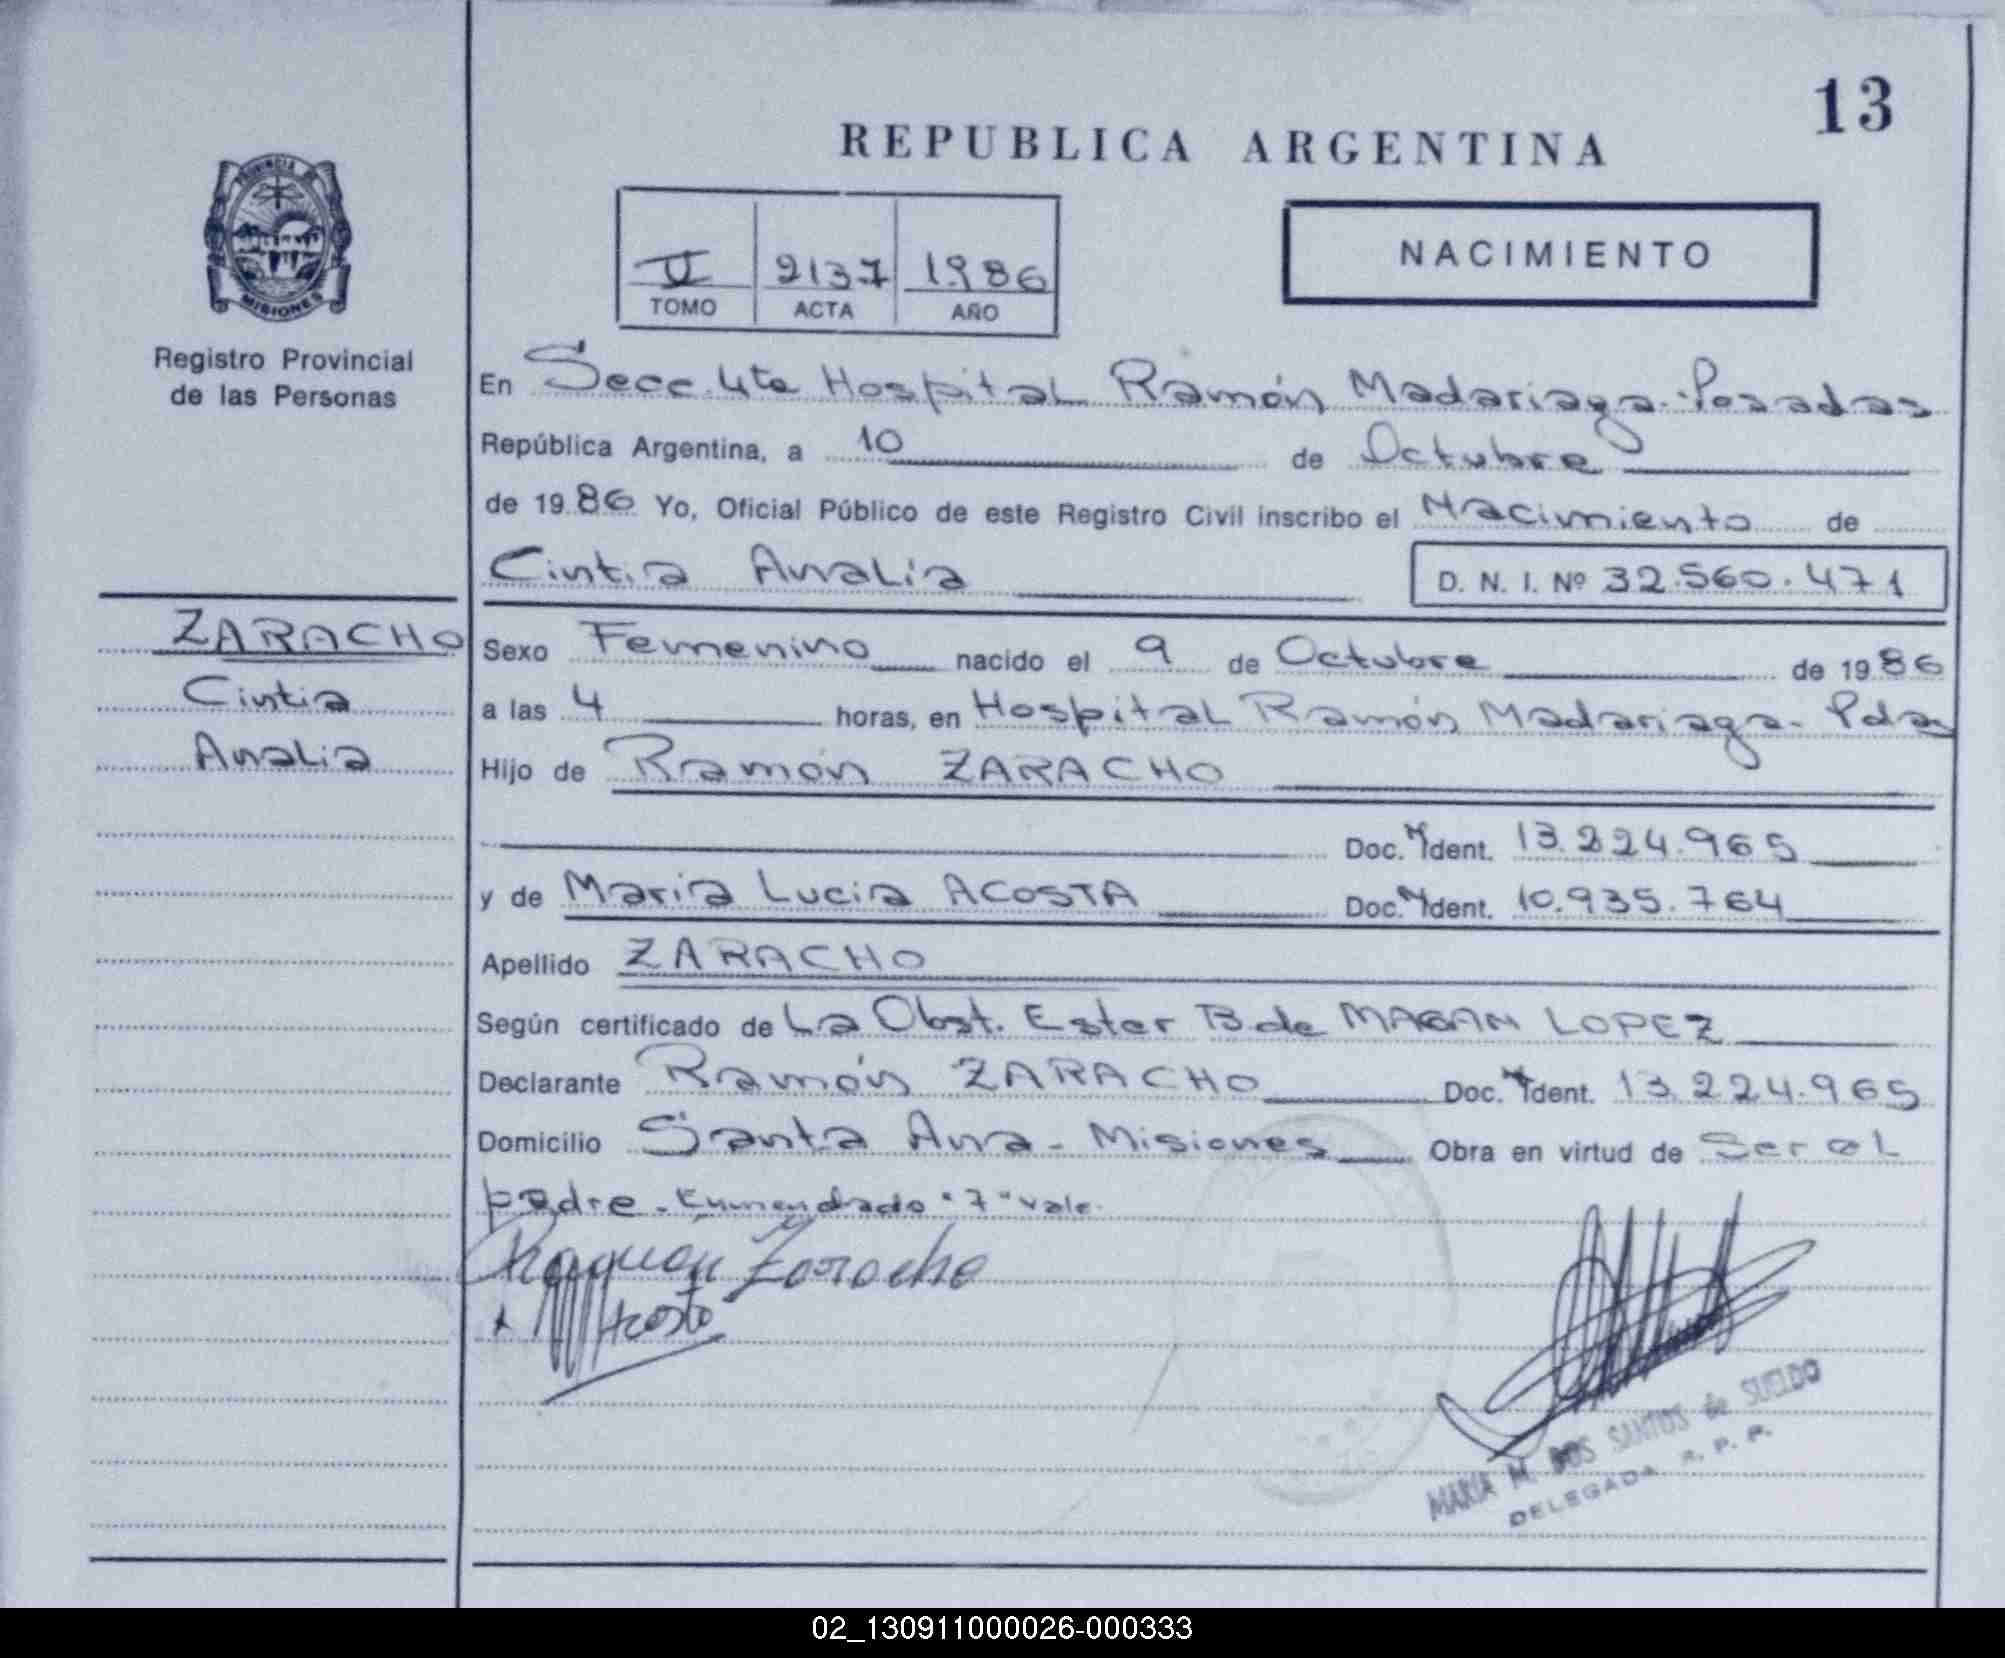 13
REPUBLICA ARGENTINA
PROVINCIA DE
MISIONES
Registro Provincial
de las Personas
II 2137 1986
TOMO ACTA AÑO
NACIMIENTO
En Secc. 4ta Hospital Ramón Madariaga - Posadas
República Argentina, a 10 de Octubre
de 1986 Yo, Oficial Público de este Registro Civil inscribo el Nacimiento de
Cintia Analía
D. N. I. Nº 32.560.471
ZARACHO
Cintia
Analia
Sexo Femenino nacido el 9 de Octubre de 1986
a las 4 horas, en Hospital Ramón Madariaga - Pdas
Hijo de Ramón ZARACHO
Doc. Ident. 13.224.965
y de Maria Lucia ACOSTA Doc. Ident. 10.935.764
Apellido ZARACHO
Según certificado de La Obst. Ester B de MAGAN LOPEZ
Declarante Ramón ZARACHO Doc. Ident. 13.224.965
Domicilio Santa Ana - Misiones Obra en virtud de Ser el
padre - Enmendado "7" vale.
Zaracho
Acosta
MARIA M. DOS SANTOS de SUELDO
DELEGADA R. P. P.
02_130911000026-000333